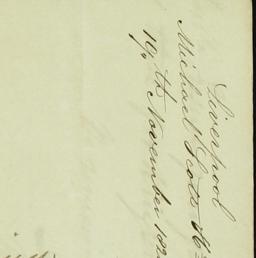 Liverpool
Michael Scott
19th November 182